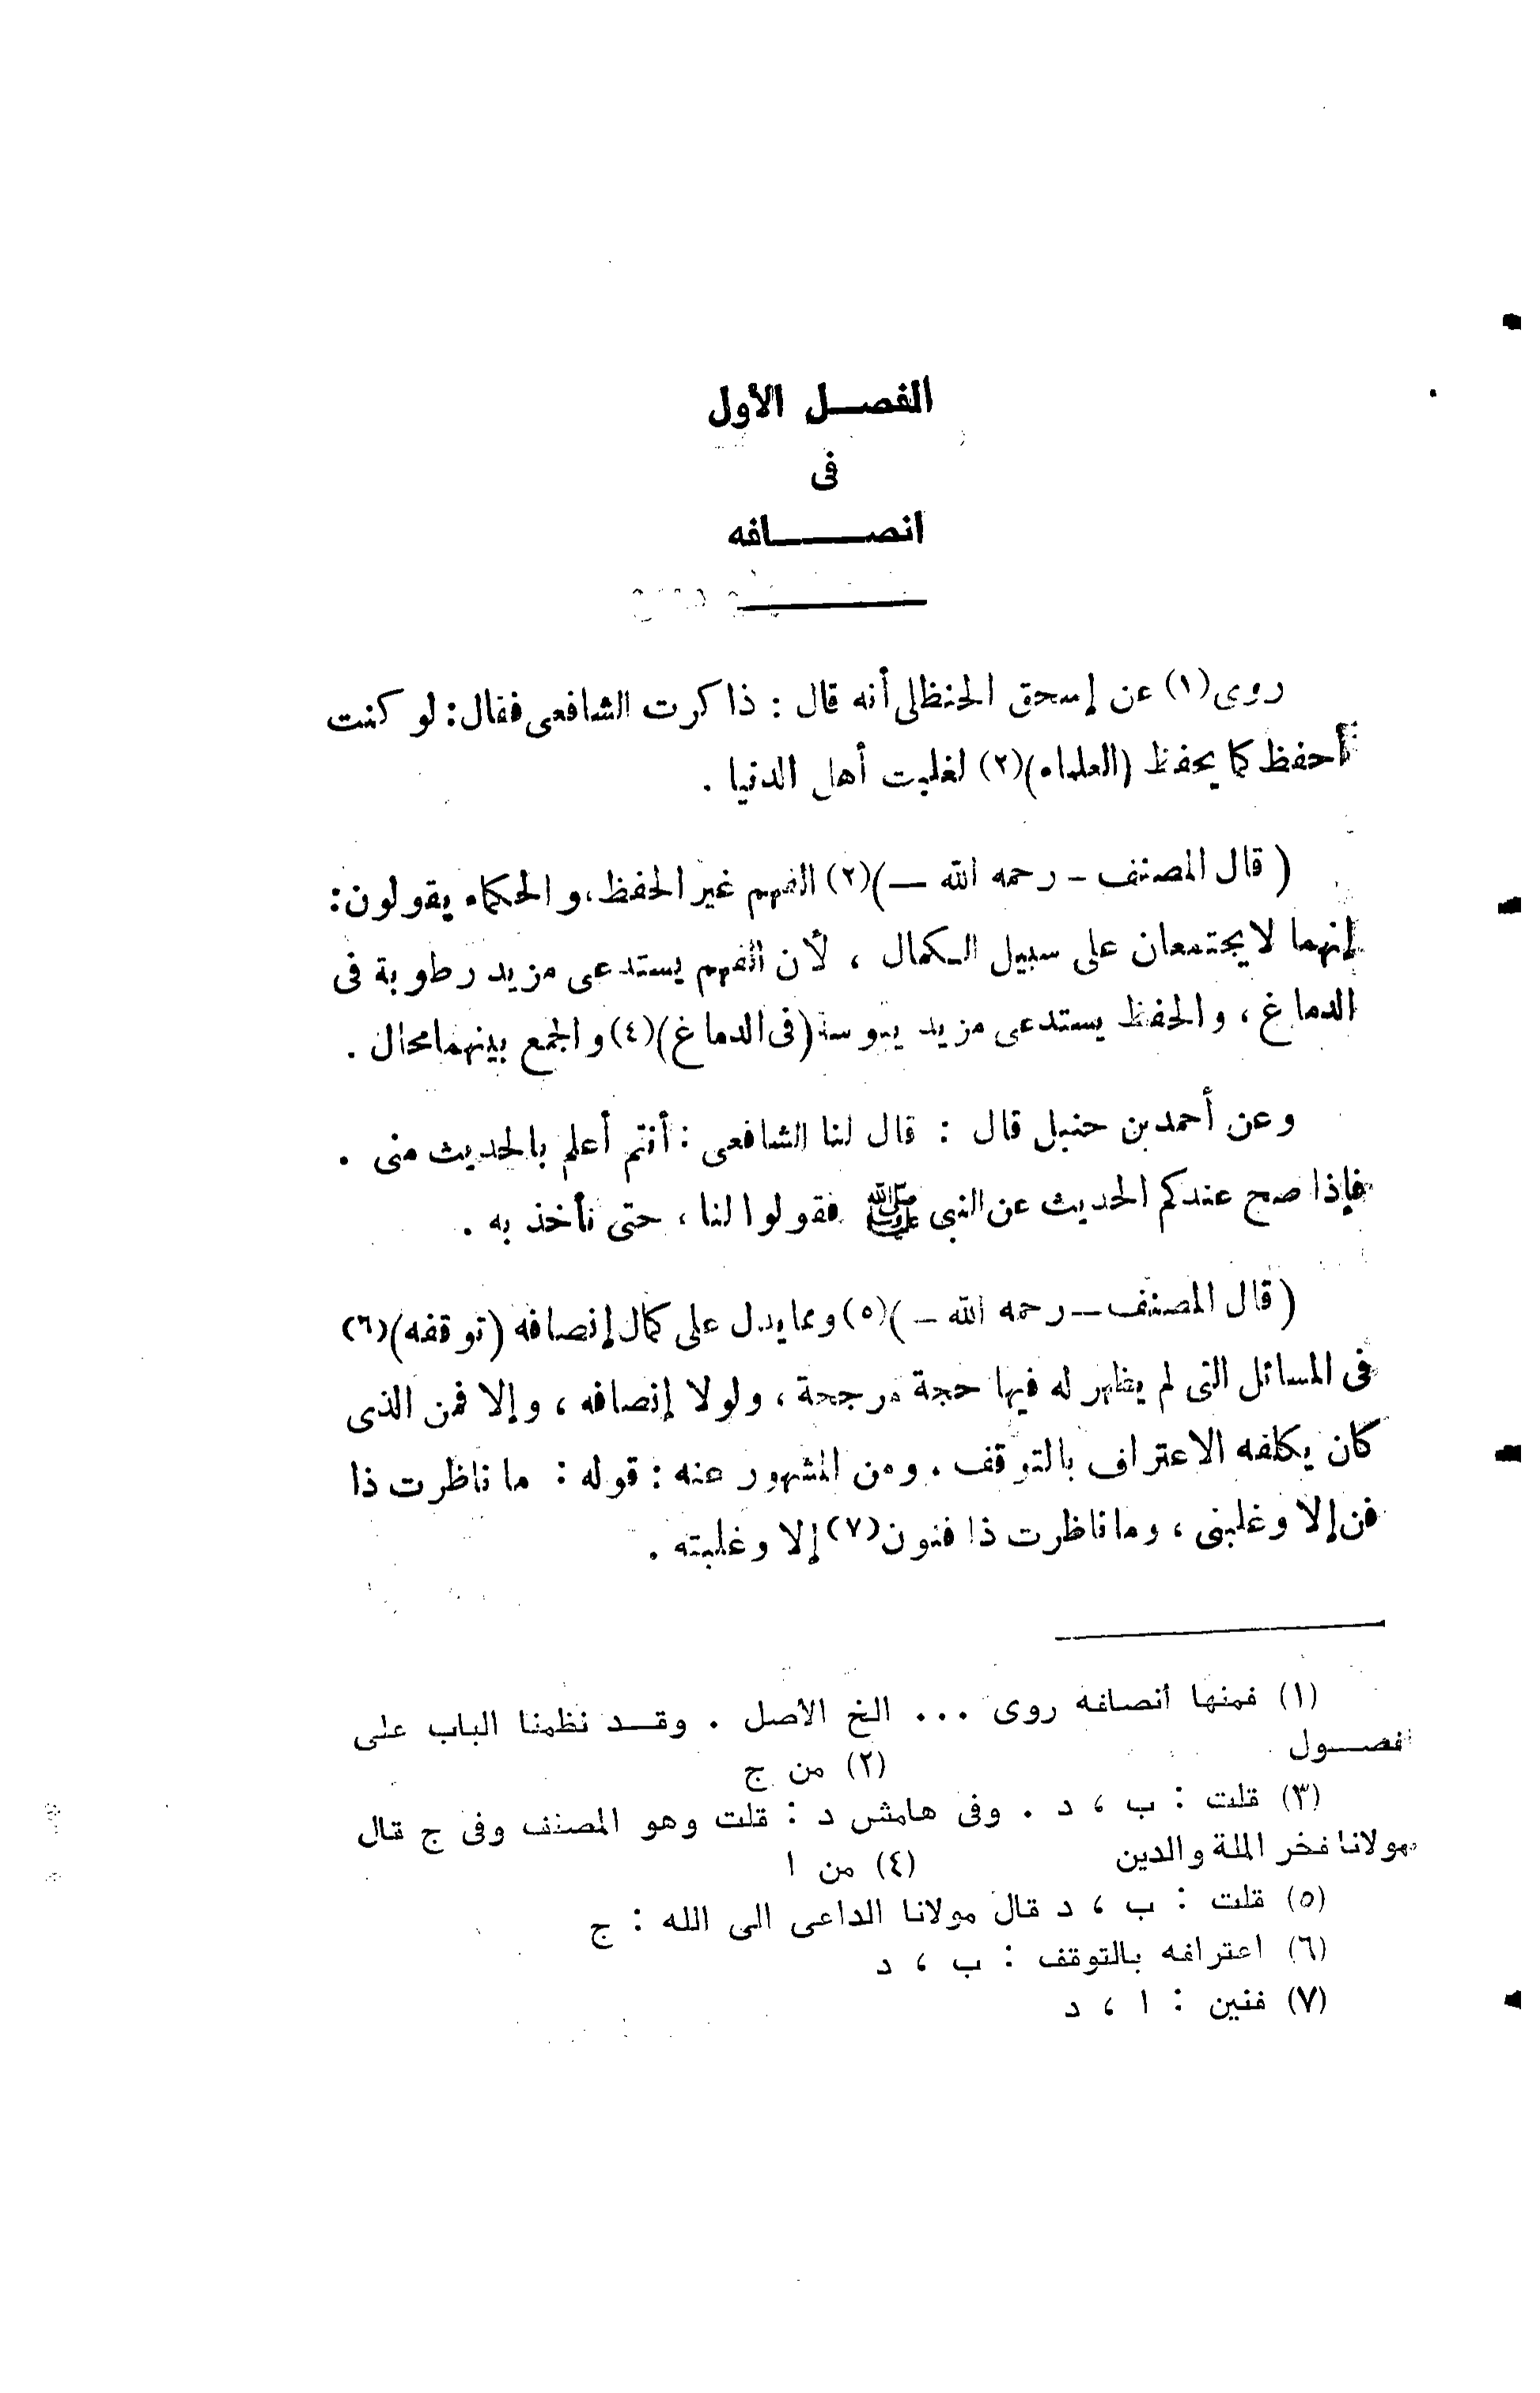 الفصل الأول
فى
انصافه
روى (١) عن إسحق الحنظلى أنه قال : ذاكرت الشافعى فقال : لو كنت
أحفظ كما يحفظ (العلماء)(٢) لغلبت أهل الدنيا .
( قال المصنف – رحمه الله – )(٢) الفهم غير الحفظ ، والحكماء يقولون :
إنهما لا يجتمعان على سبيل الكمال ، لأن الفهم يستدعى مزيد رطوبة فى
الدماغ ، والحفظ يستدعى مزيد يبوسة (فى الدماغ)(٤) والجمع بينهما محال .
وعن أحمد بن حنبل قال : قال لنا الشافعى : أنتم أعلم بالحديث منى .
فإذا صح عندكم الحديث عن النبى ﷺ فقولوا لنا ، حتى نأخذ به .
( قال المصنف – رحمه الله – )(٥) ومما يدل على كمال إنصافه (توقفه)(٦)
فى المسائل التى لم يظهر له فيها حجة مرجحة ، ولولا إنصافه ، وإلا فمن الذى
كان يكلفه الاعتراف بالتوقف . ومن المشهور عنه : قوله : ما ناظرت ذا
فن إلا وغلبنى ، وما ناظرت ذا فنون (٧) إلا وغلبته .
(١) فمنها انصافه روى ... الخ الأصل . وقد نظمنا الباب على
فصول (٢) من ج
(٣) قلت : ب ، د . وفى هامش د : قلت وهو المصنف وفى ج قال
مولانا فخر الملة والدين (٤) من ا
(٥) قلت : ب ، د قال مولانا الداعى الى الله : ج
(٦) اعترافه بالتوقف : ب ، د
(٧) فنين : ا ، د